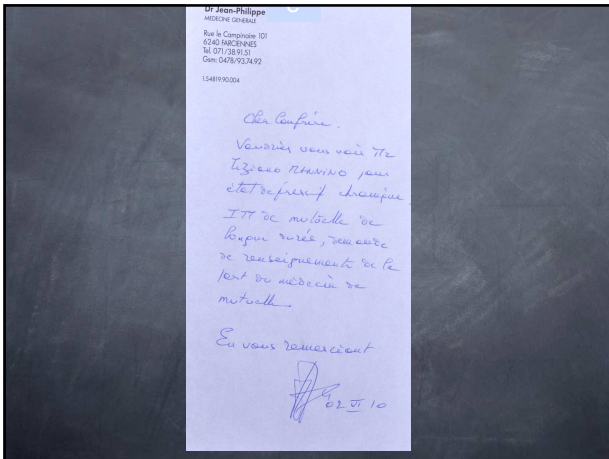 Dr Jean-Philippe
MEDECINE GENERALE
Rue le Campinaire 101
6240 FARCIENNES
Tel. 071/38.91.51
Gsm: 0478/93.74.92
1.54819.90.004
Cher Confrère.
Voudriez vous voir Mr
Tiziano pour
état dépressif chronique.
ITT de mutuelle de
longue durée, demande
de renseignements de la
part du médecin de
mutuelle.
En vous remerciant
02 VI 10